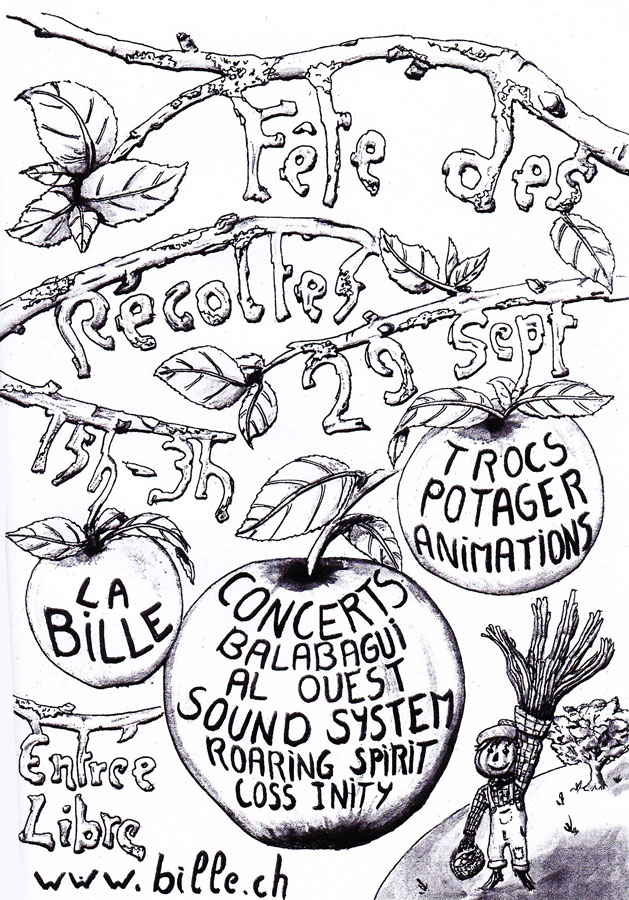 Fête des
Recoltes
29 sept
15h-3h
TROCS
POTAGER
ANiMATIONS
LA
BiLLE
CONCERTS
BALABAGUi
AL OUEST
SOUND SYSTEM
ROARiNG SPiRiT
COSS INiTY
Entree
Libre
www.bille.ch